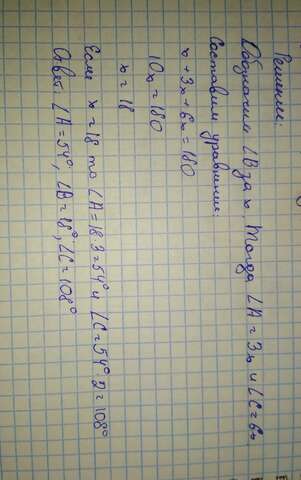 Решение:
Обозначим ∠B за x, тогда ∠A = 3x и ∠C = 6x
Составим уравнение:
x + 3x + 6x = 180
10x = 180
x = 18
Если x = 18 то ∠A = 18·3 = 54° и ∠C = 54°·2 = 108°
Ответ: ∠A = 54°, ∠B = 18°, ∠C = 108°